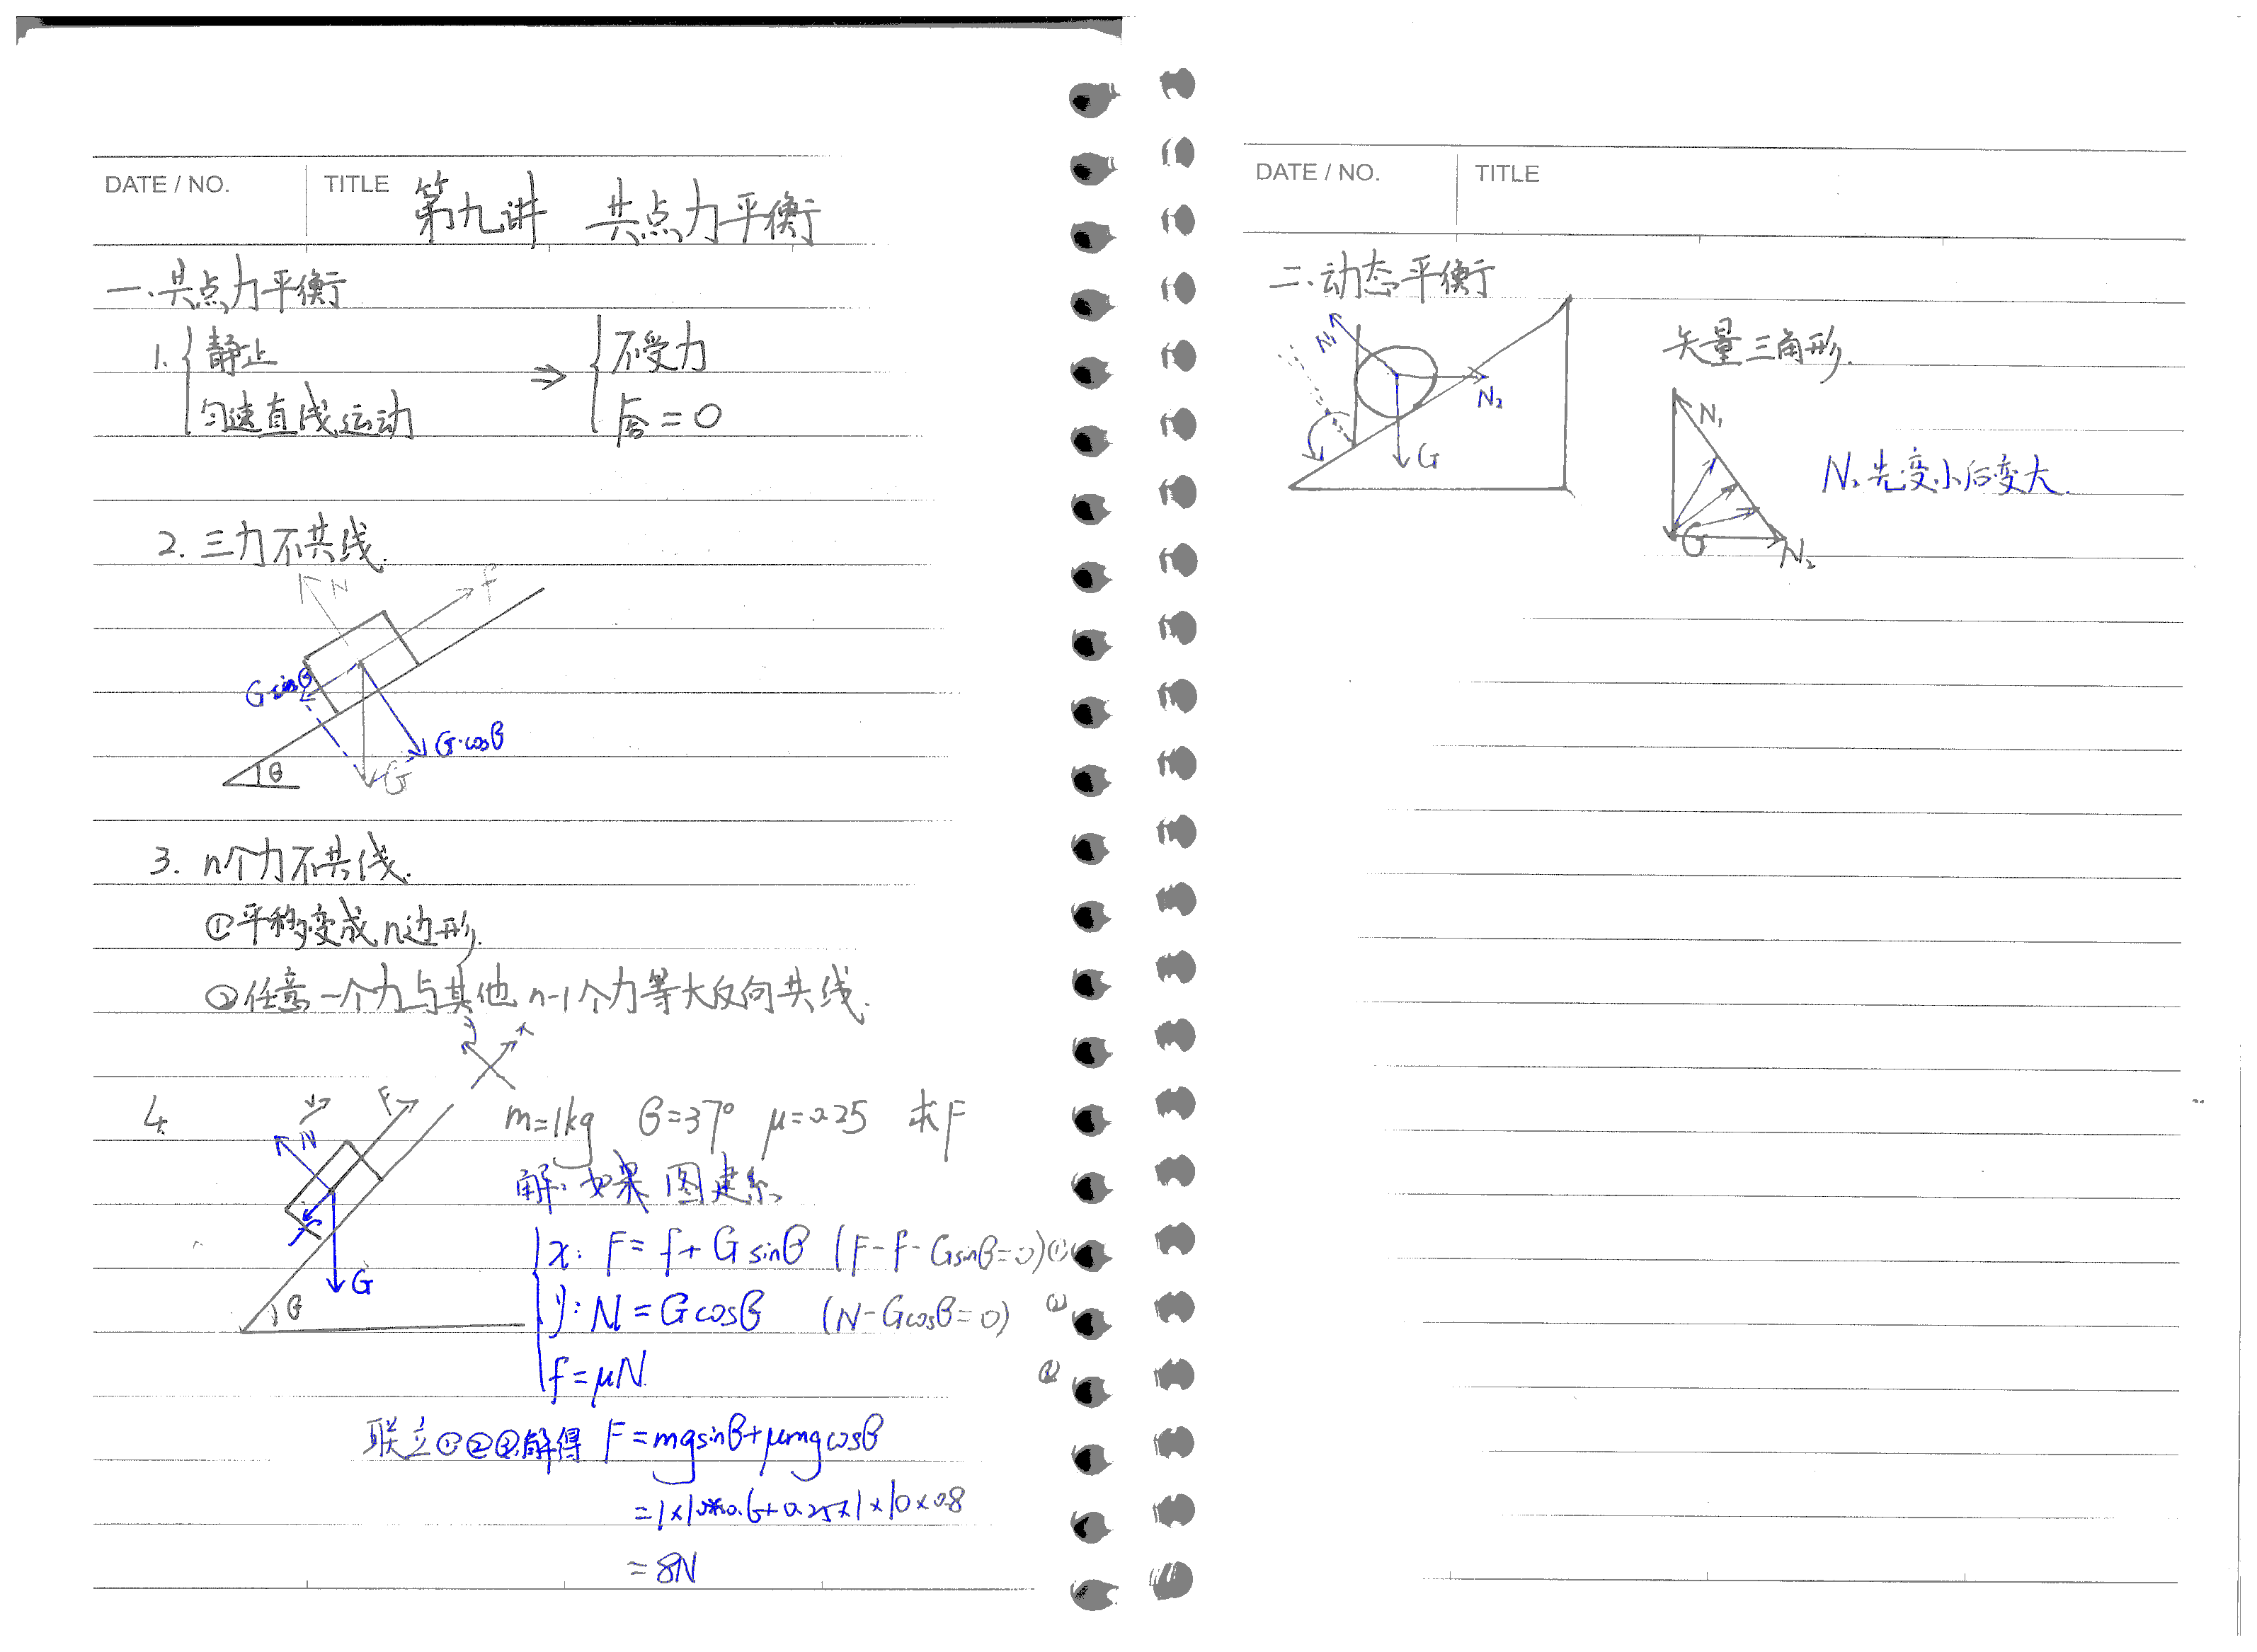 DATE / NO. TITLE 第九讲 共点力平衡
一.共点力平衡
1. { 静止 ⇒ { 不受力
匀速直线运动 F合=0
2. 三力不共线.
N f
G·sinθ
G·cosθ
θ G
3. n个力不共线.
①平移变成n边形.
②任意一个力与其他 n-1个力等大反向共线.
y x
4. N F G θ
m=1kg θ=37° μ=0.25 求F
解: 如果图建系
x: F=f+Gsinθ (F-f-Gsinθ=0)①
y: N=Gcosθ (N-Gcosθ=0) ②
f=μN. ③
联立①②③解得 F=mgsinθ+μmgcosθ
=1×10×0.6+0.25×1×10×0.8
=8N
DATE / NO. TITLE
二.动态平衡
N₁ N₂ G
矢量三角形.
N₁
G N₂
N₂先变小后变大.